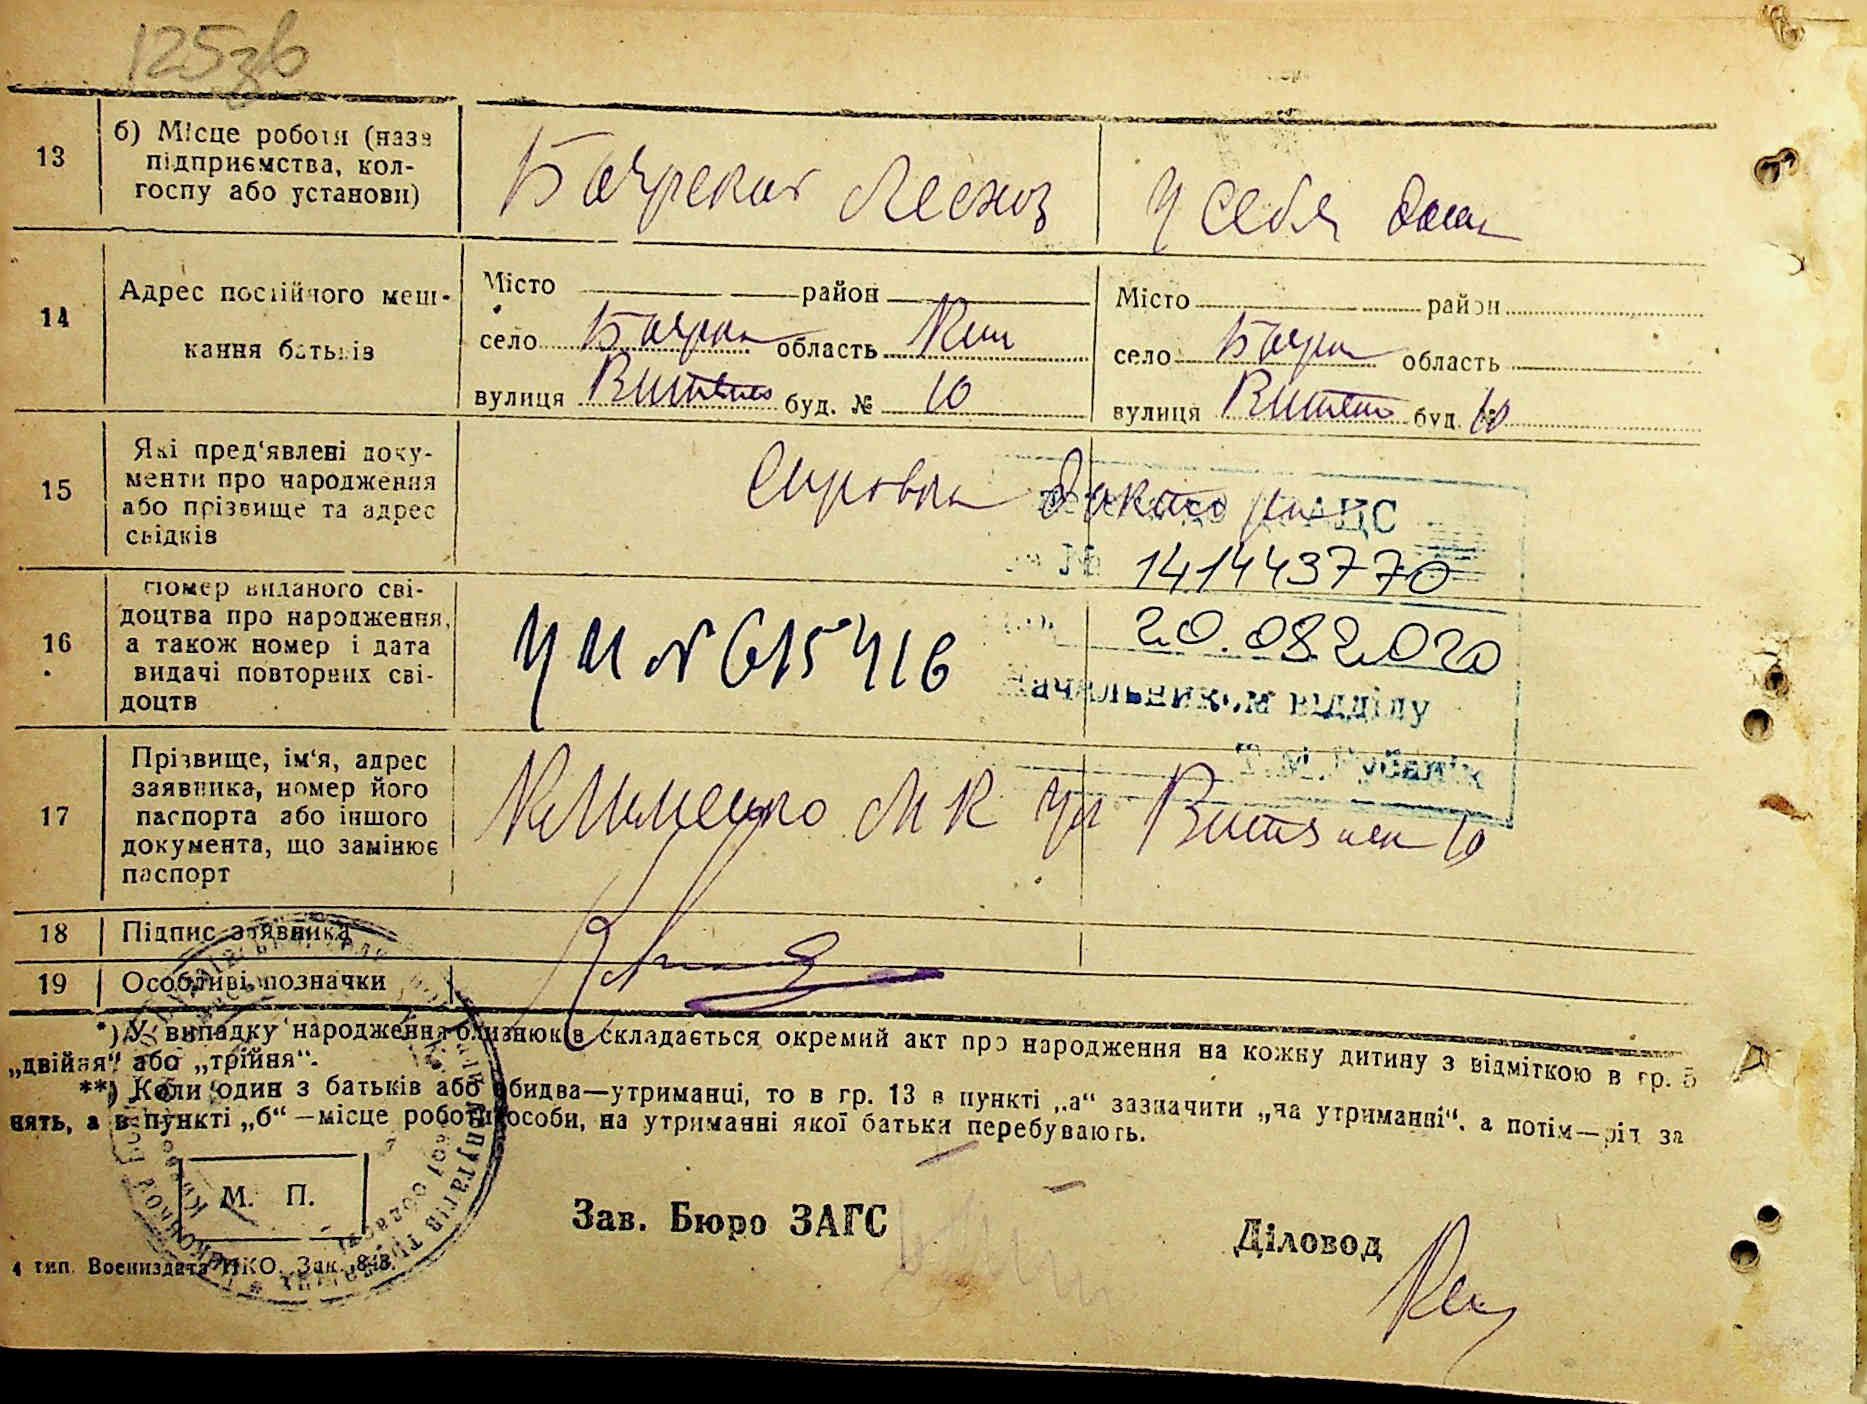 125зв
13
б) Місце роботи (назва
підприємства, кол-
госпу або установи)
Боярская Лесхоз
У себя дома
14
Адрес постійного меш-
кання батьків
Місто район
село Боярка область Киев
вулиця буд. № 10
Місто район
село Боярка область
вулиця буд. № 10
15
Які пред'явлені доку-
менти про народження
або прізвище та адрес
свідків
Справка
16
Номер виданого сві-
доцтва про народження,
а також номер і дата
видачі повторних сві-
доцтв
№ 615416
ДРАЦС
№ 141443770
20.08.2020
Начальником відділу
17
Прізвище, ім'я, адрес
заявника, номер його
паспорта або іншого
документа, що замінює
паспорт
Клименко М К ул 10
18
Підпис заявника
19
Особливі позначки
*) У випадку народження близнюків складається окремий акт про народження на кожну дитину з відміткою в гр. 5
„двійня“ або „трійня“.
**) Коли один з батьків або обидва—утриманці, то в гр. 13 в пункті „а“ зазначити „на утриманні“, а потім—рід за
нять, а в пункті „б“—місце роботи особи, на утриманні якої батьки перебувають.
М. П.
Зав. Бюро ЗАГС
Діловод
4 тип. Воениздата НКО. Зак. 848.